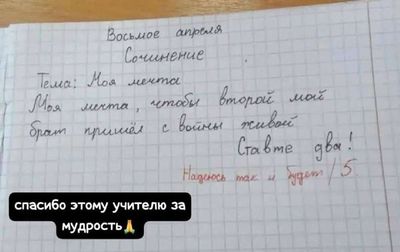 Восьмое апреля
Сочинение
Тема: Моя мечта
Моя мечта, чтобы второй мой
брат пришёл с войны живой
Ставте два!
Надеюсь так и будет / 5
спасибо этому учителю за
мудрость🙏